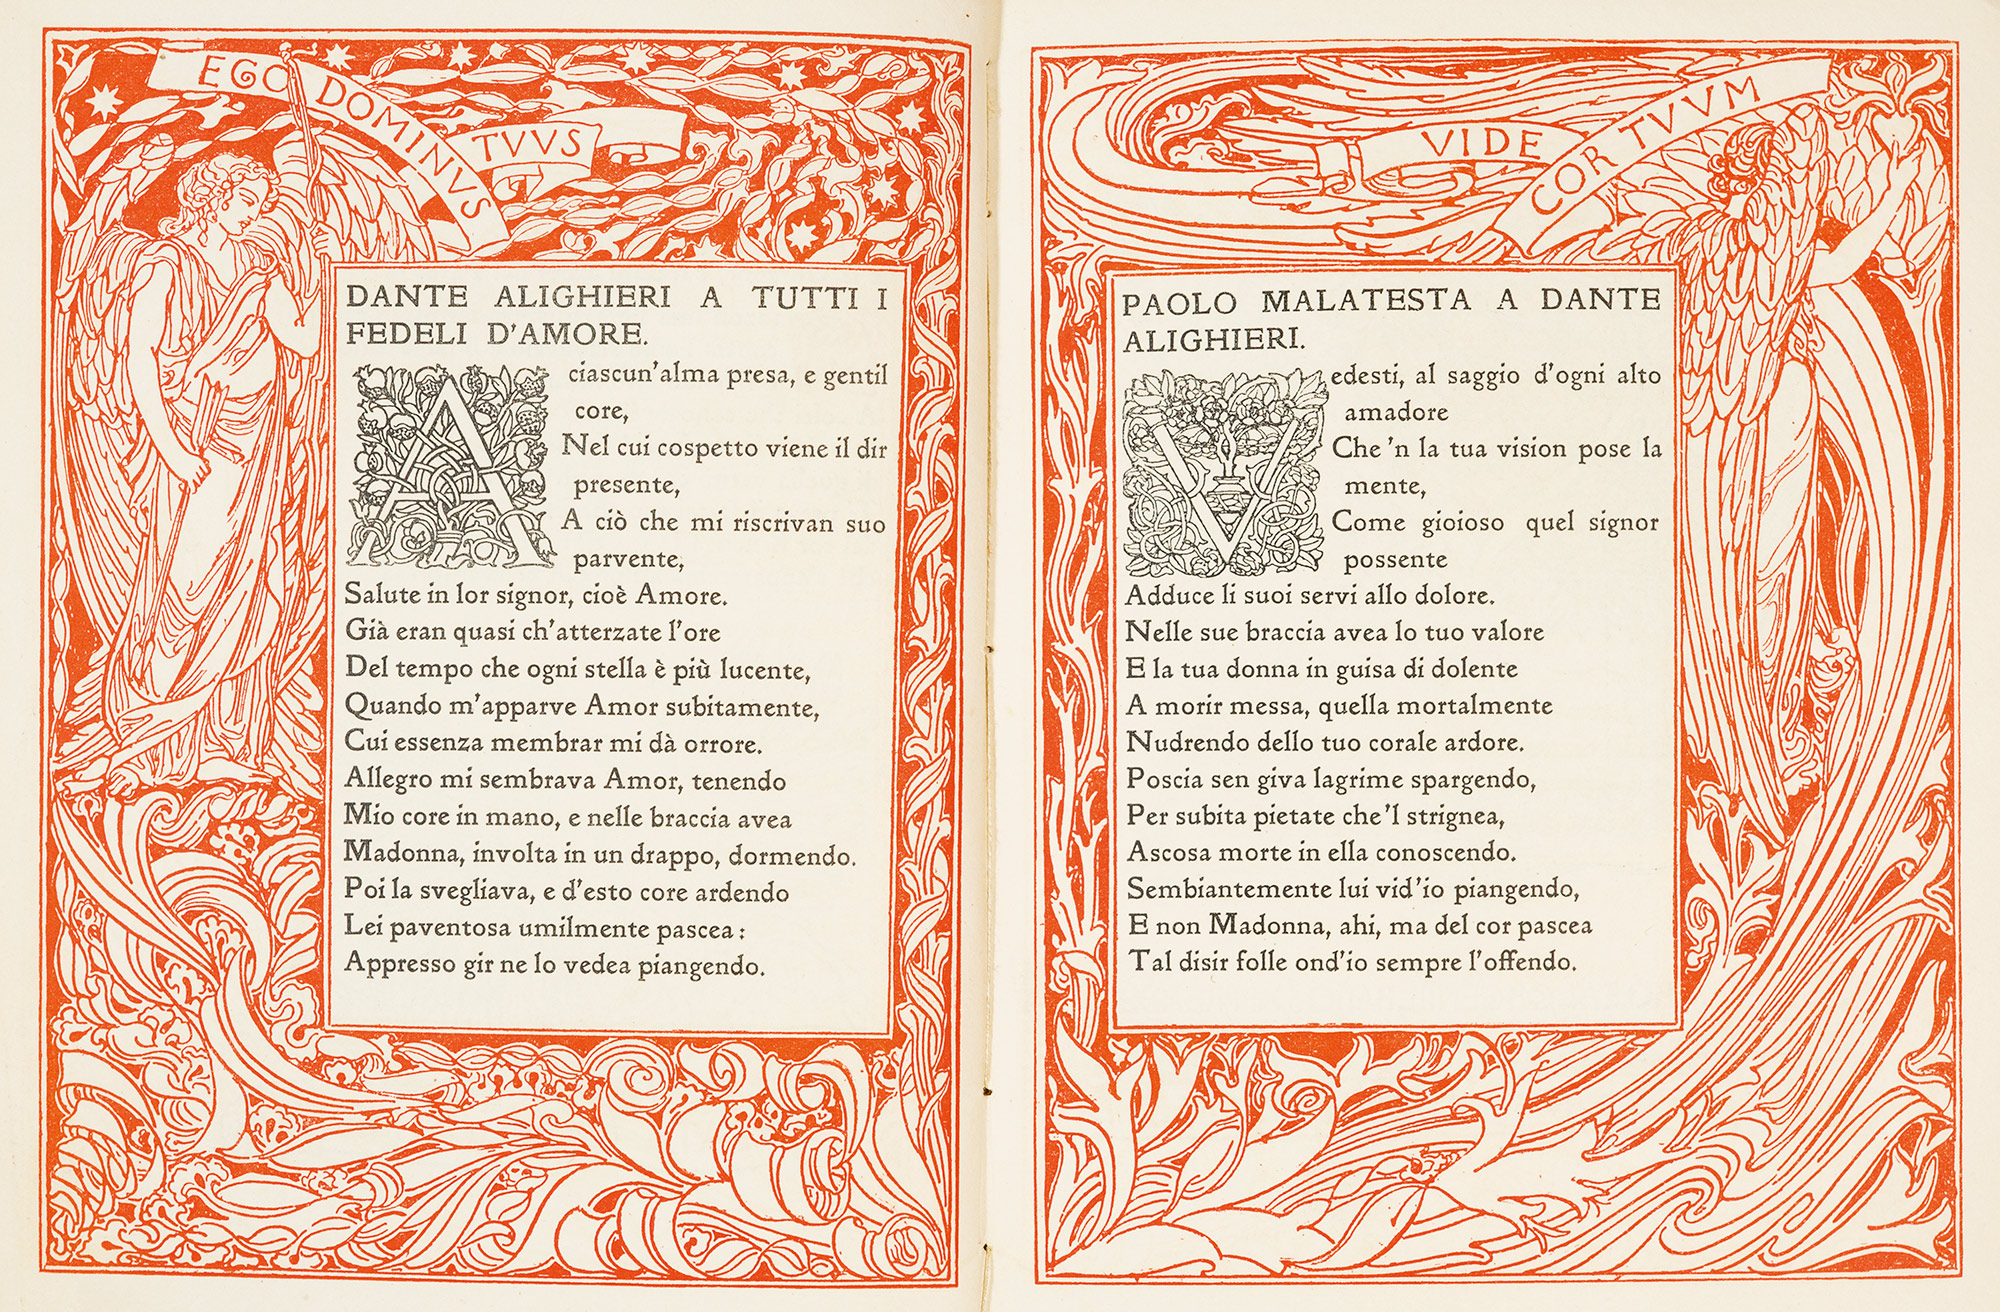 EGO DOMINVS TVVS
DANTE ALIGHIERI A TUTTI I
FEDELI D'AMORE.
A ciascun'alma presa, e gentil
core,
Nel cui cospetto viene il dir
presente,
A ciò che mi riscrivan suo
parvente,
Salute in lor signor, cioè Amore.
Già eran quasi ch'atterzate l'ore
Del tempo che ogni stella è più lucente,
Quando m'apparve Amor subitamente,
Cui essenza membrar mi dà orrore.
Allegro mi sembrava Amor, tenendo
Mio core in mano, e nelle braccia avea
Madonna, involta in un drappo, dormendo.
Poi la svegliava, e d'esto core ardendo
Lei paventosa umilmente pascea:
Appresso gir ne lo vedea piangendo.
VIDE COR TVVM
PAOLO MALATESTA A DANTE
ALIGHIERI.
Vedesti, al saggio d'ogni alto
amadore
Che 'n la tua vision pose la
mente,
Come gioioso quel signor
possente
Adduce li suoi servi allo dolore.
Nelle sue braccia avea lo tuo valore
E la tua donna in guisa di dolente
A morir messa, quella mortalmente
Nudrendo dello tuo corale ardore.
Poscia sen giva lagrime spargendo,
Per subita pietate che 'l strignea,
Ascosa morte in ella conoscendo.
Sembiantemente lui vid'io piangendo,
E non Madonna, ahi, ma del cor pascea
Tal disir folle ond'io sempre l'offendo.